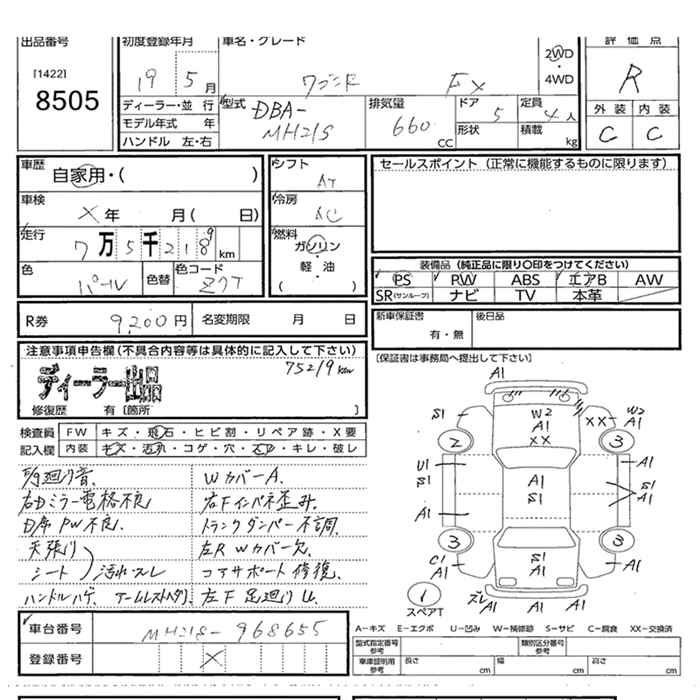 出品番号
[1422]
8505
初度登録年月
19 5月
ディーラー・並 行
モデル年式 年
ハンドル 左・右
車名・グレード
ワゴンR FX
2WD
・
4WD
型式
DBA-
MH21S
排気量
660
CC
ドア
5
形状
定員
4人
積載
kg
評価点
R
外装 内装
C C
車歴
自家用・( )
車検
X年 月( 日)
走行
7万5千219km
色
パール
色替
色コード
Z7T
シフト
AT
冷房
AC
燃料
ガソリン
・
軽油
( )
セールスポイント(正常に機能するものに限ります)
装備品(純正品に限り〇印をつけてください)
PS PW ABS エアB AW
SR(サンルーフ) ナビ TV 本革
R券 9,200円 名変期限 月 日
新車保証書
有・無
後日品
[保証書は事務局へ提出して下さい]
注意事項申告欄(不具合内容等は具体的に記入して下さい)
75219km
ディーラー出品
修復歴 有 [箇所 ]
検査員 FW キズ・飛石・ヒビ割・リペア跡・X要
記入欄 内装 キズ・汚れ・コゲ・穴・スレ・キレ・破レ
右Dミラー電格不良
PW不良
天張り
シート 汚れ・スレ
ハンドルハゲ、アームレストヘタリ
WカバーA、
右Fインパネ歪み、
トランクダンパー不調、
左RWカバー欠、
コアサポート修復、
左F足廻りU、
A1
W2
A1
XX
S1
A1
XX
W2
A1
2
3
U1
A1
A1
S1
A1
S1
A1
A1
3
3
C1
A1
S1
A1
S1
A1
スペアT
ズレ
A1
A1
A1
A-キズ E-エクボ U-凹み W-補修跡 S-サビ C-腐食 XX-交換済
車台番号 MH21S-968655
登録番号 X
型式指定番号
参考
類別区分番号
参考
車庫証明用
参考
長さ cm 幅 cm 高さ cm